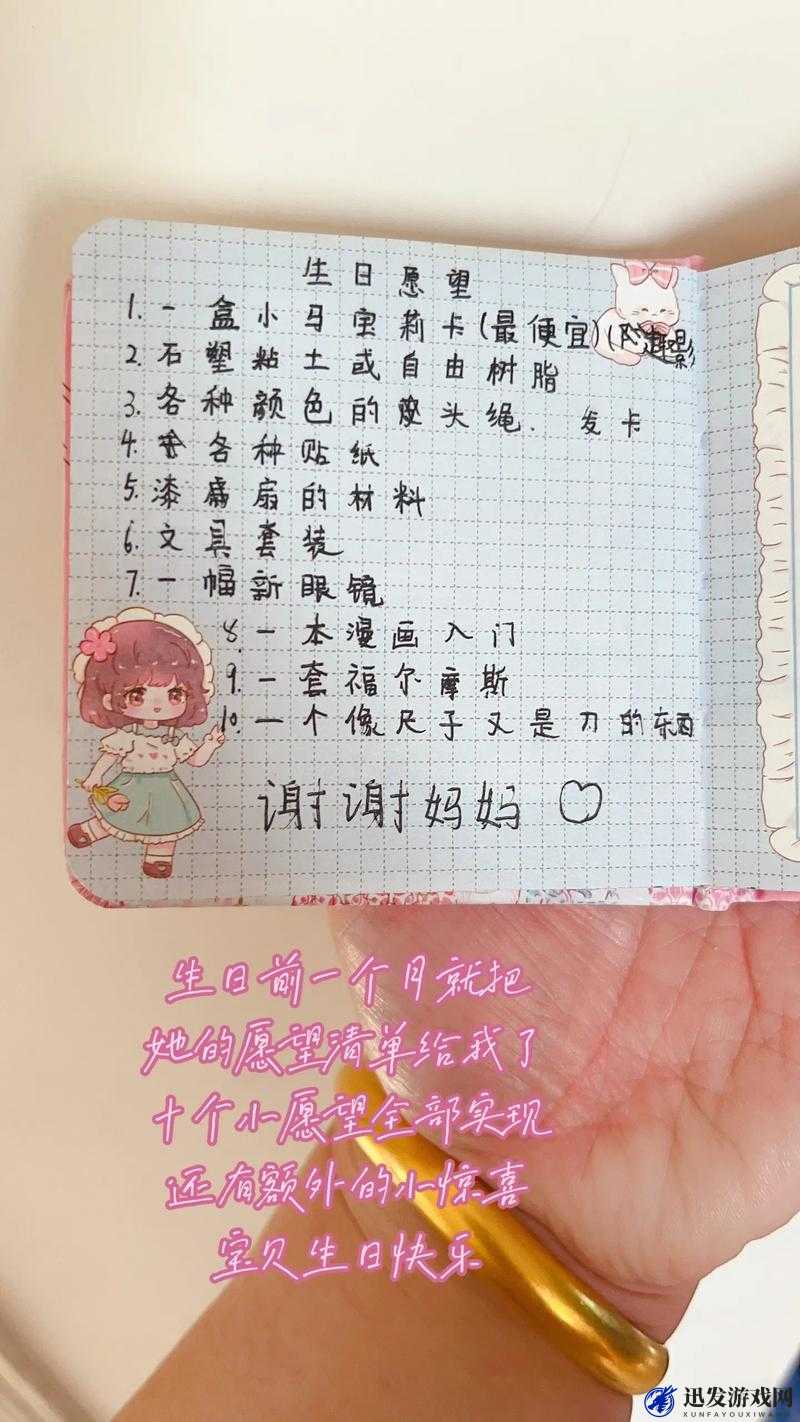 生日愿望
1. 一盒小马宝莉卡(最便宜)(趣影
2. 石塑粘土或自由树脂
3. 各种颜色的头绳. 发卡
4. 各种贴纸
5. 漆扇扇的材料
6. 文具套装
7. 一幅新眼镜
8. 一本漫画入门
9. 一套福尔摩斯
10. 一个像尺子又是刀的东西
谢谢妈妈 ♡
生日前一个月就把
她的愿望清单给我了
十个小愿望全部实现
还有额外的小惊喜
宝贝生日快乐
迅发游戏网
XUNFAYOUXIWANG